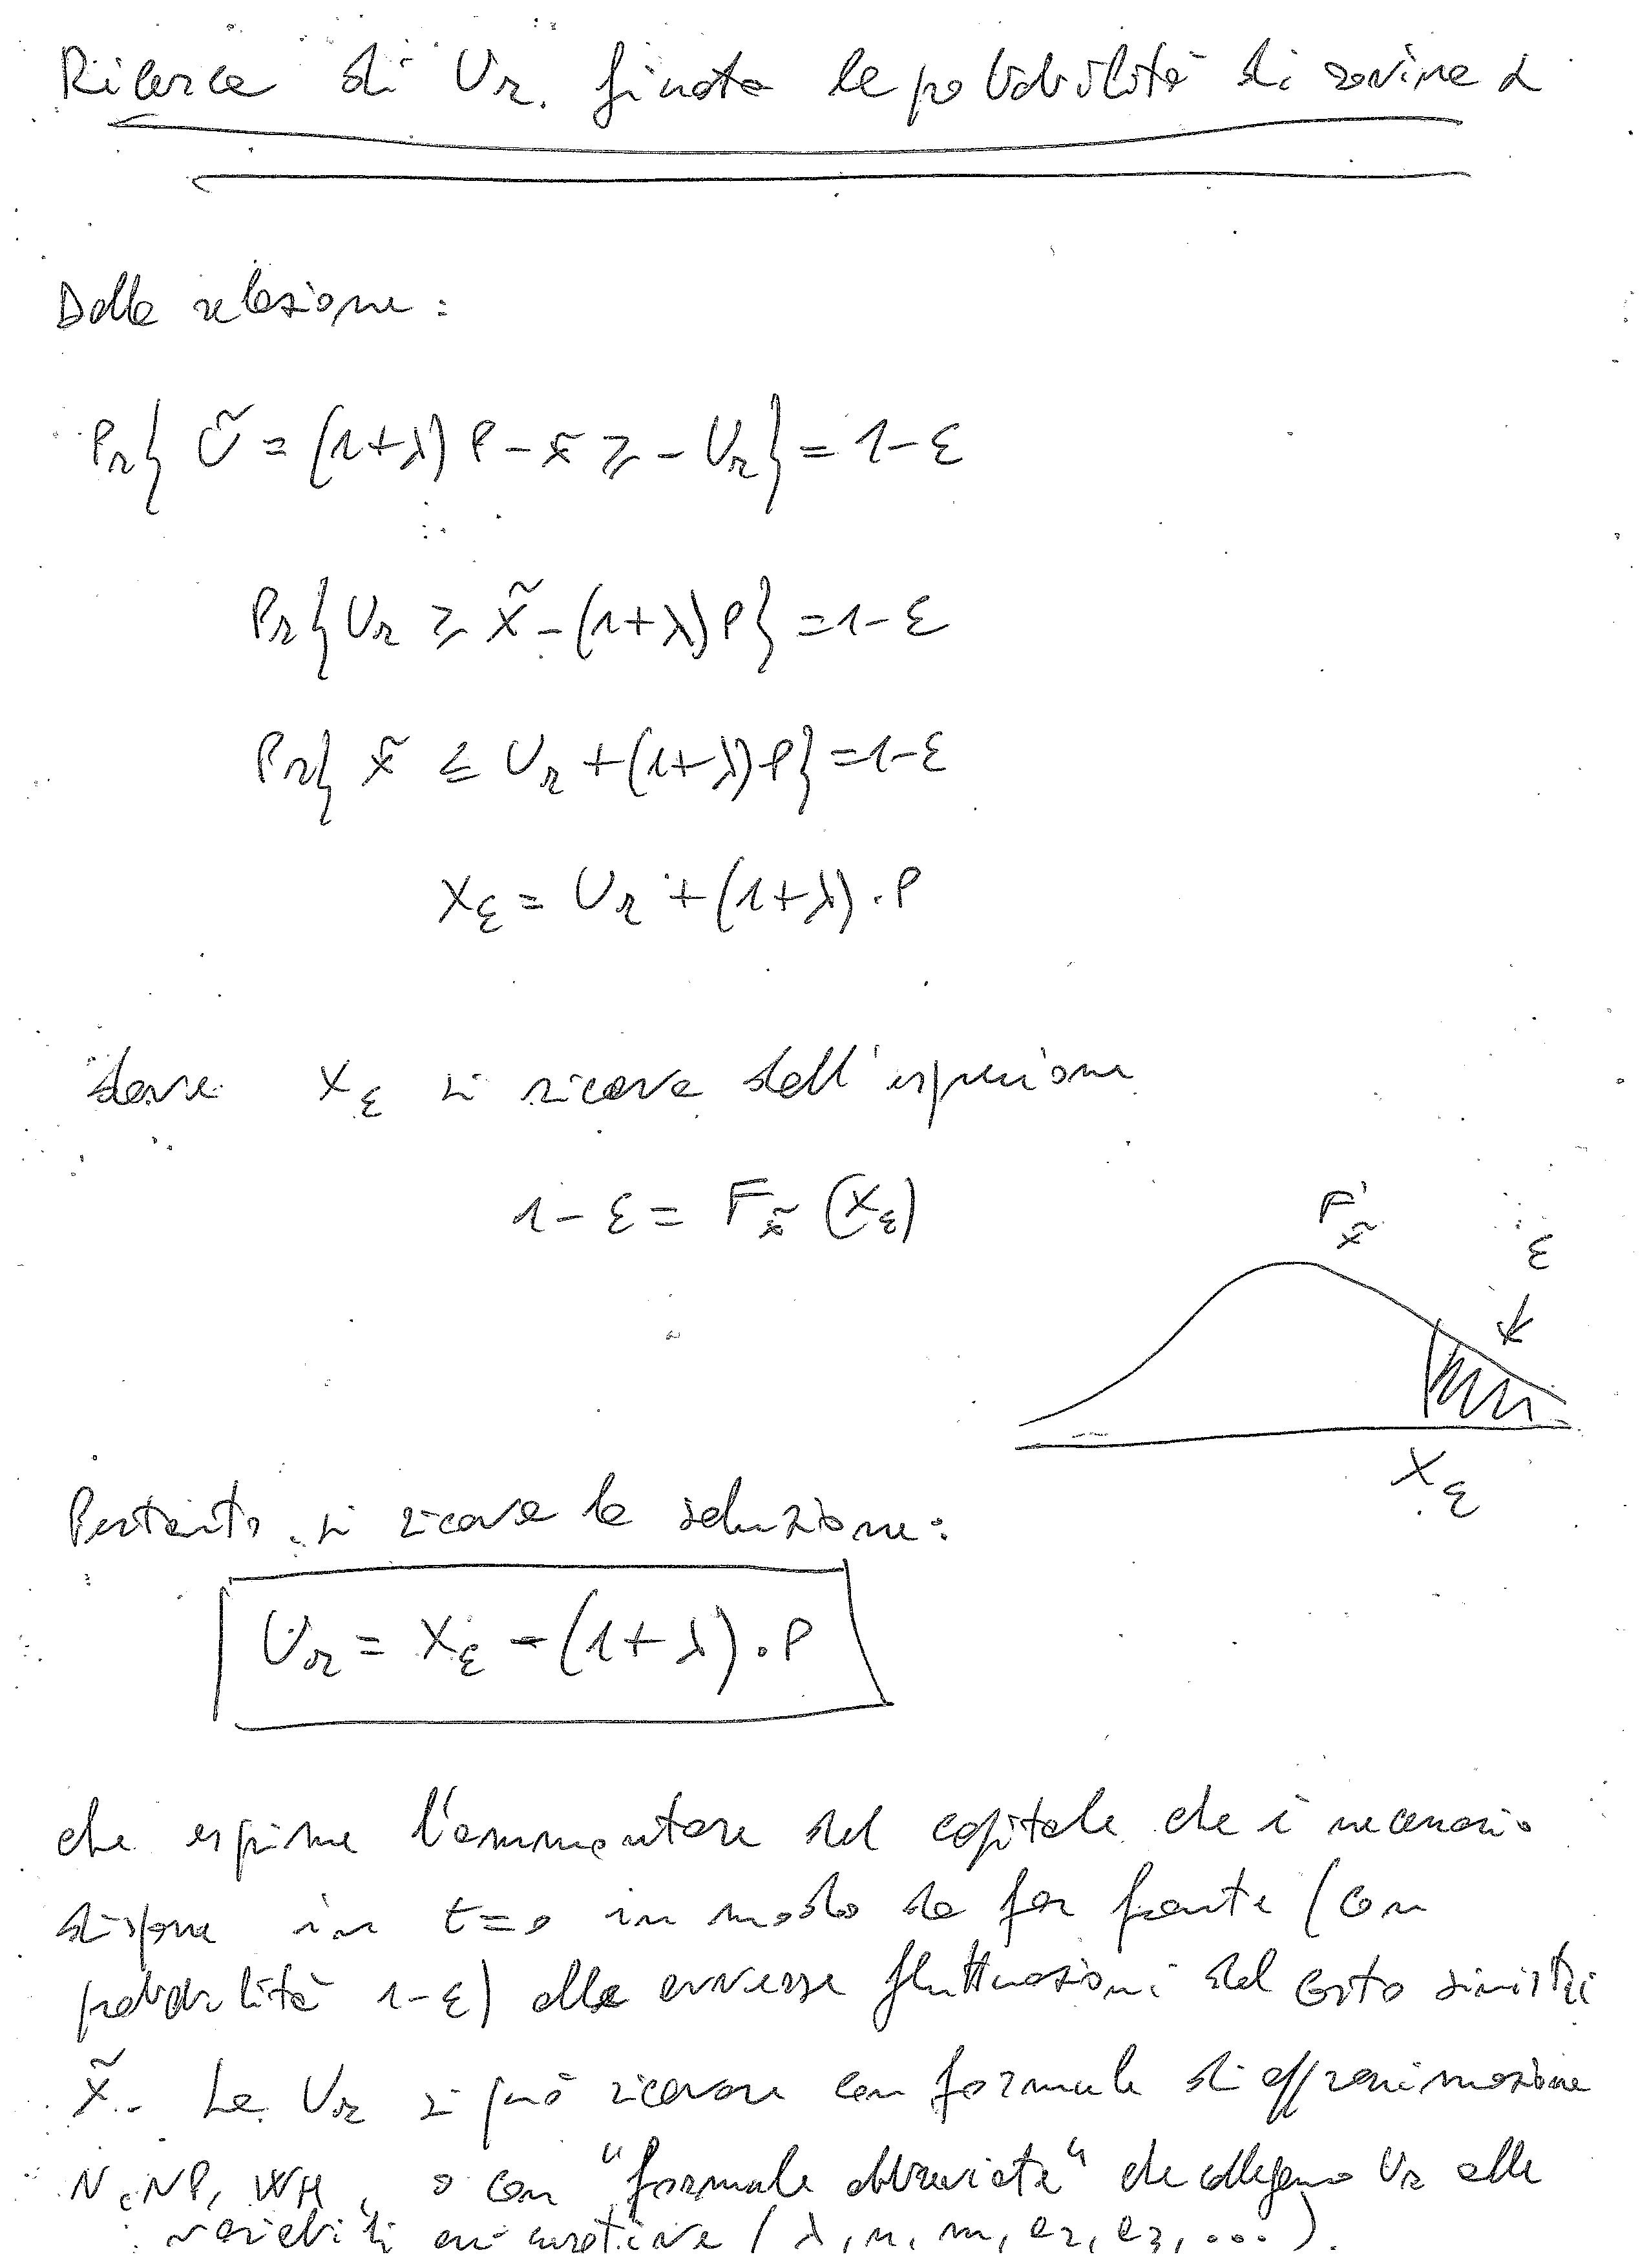 Ricerca di Ur. fissata la probabilità di rovina α
Dalla relazione:
Pr{ Ũ = (1+λ) P - x̃ ≥ - Ur } = 1-ε
Pr{ Ur ≥ x̃ - (1+λ) P } = 1-ε
Pr{ x̃ ≤ Ur + (1+λ) P } = 1-ε
Xε = Ur + (1+λ) . P
dove Xε si ricava dall'espressione
1-ε = F x̃ (Xε)
F' x̃
ε
Xε
Pertanto si ricava la soluzione:
Ur = Xε - (1+λ) . P
che esprime l'ammontare del capitale che è necessario
disporre in t=0 in modo da far fronte (con
probabilità 1-ε) alle avverse fluttuazioni del costo sinistri
X̃. La Ur si può ricavare con formule di approssimazione
N, NP, WH, o con "formule abbreviate" che collegano Ur alle
variabili (λ, n, m, c2, c3, ...).